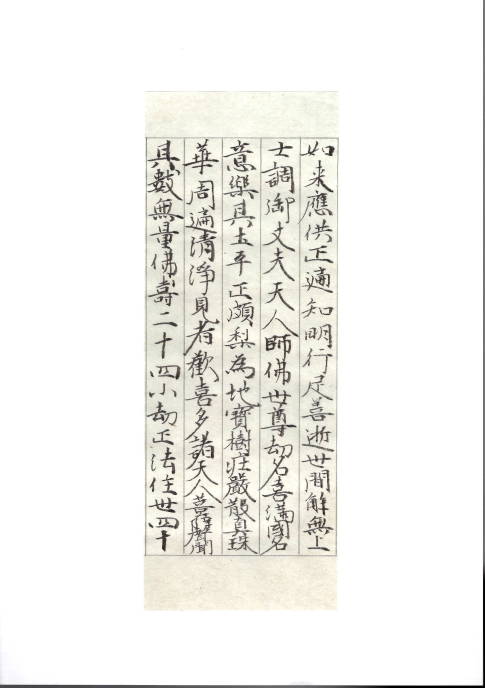 如来應供正遍知明行足善逝世間解無上
士調御丈夫天人師佛世尊劫名喜滿國名
意樂其土平正頗梨為地寶樹莊嚴散真珠
華周遍清淨見者歡喜多諸天人菩薩聲聞
其數無量佛壽二十四小劫正法住世四十